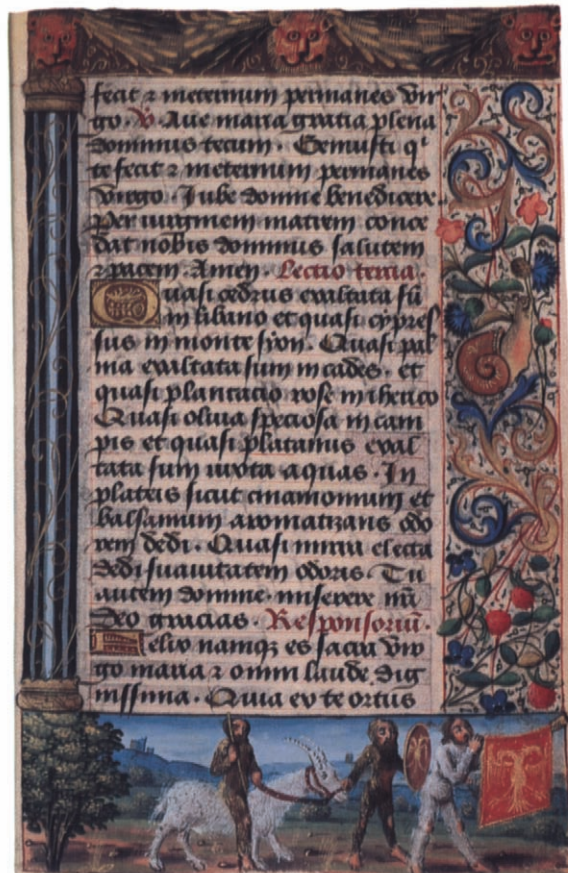 fecit ⁊ meternum permanes vir
go. V Aue maria gratia plena
dominus tecum. Genuisti q
te fecit ⁊ ineternum permanes
virgo. Iube domne benedicere.
Per virginem matrem conce
dat nobis dominus salutem
⁊ pacem. Amen. Lectio tercia.
Quasi cedrus exaltata sū
in libano et quasi cypres
sus in monte syon. Quasi pal
ma exaltata sum in cades. et
quasi plantacio rose in iherico
Quasi oliua speciosa in cam
pis et quasi platanus exal
tata sum iuxta aquas. In
plateis sicut cinamomum et
balsamum aromatizans odo
rem dedi. Quasi mirra electa
dedi suauitatem odoris. Tu
autem domine. miserere nr̄i
deo gracias. Responsoriū.
Felix namqꝫ es sacra vir
go maria ⁊ omni laude dig
nissima. Quia ex te ortus